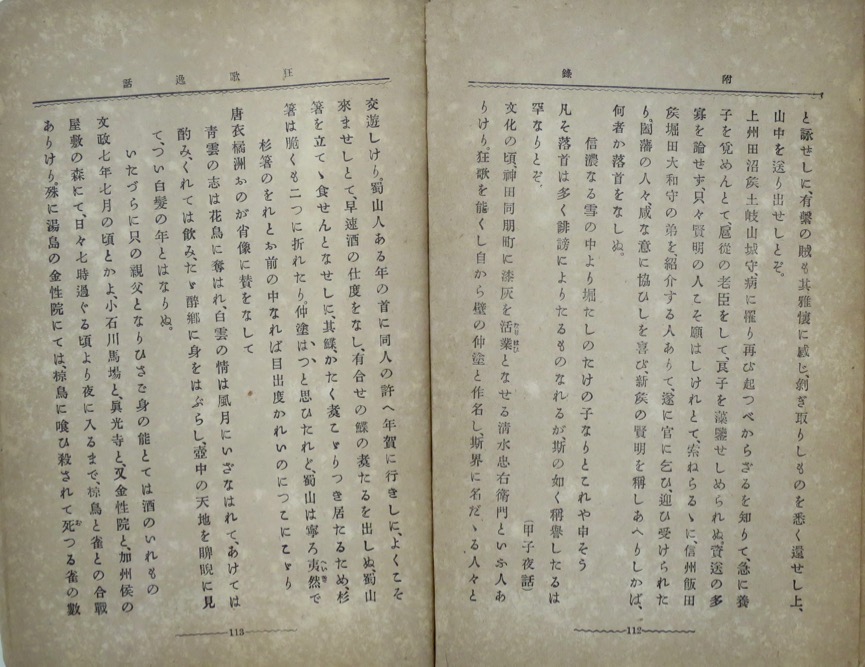 附錄
と詠せしに、有繋の賊も其雅懷に感じ、剝ぎ取りしものを悉く還せし上、
山中を送り出せしとぞ。
上州田沼矦土岐山城守、病に罹り再び起つべからざるを知りて、急に養
子を覓めんとて、扈從の老臣をして、良子を藻鑒せしめられぬ。資送の多
寡を論せず、只々賢明の人こそ願はしけれとて、索ねらるゝに、信州飯田
矦堀田大和守の弟を、紹介する人ありて、遂に官に乞ひ、迎ひ受けられた
り。闔藩の人々、咸な意に協ひしを喜び、新矦の賢明を稱しあへりしかば、
何者か落首をなしぬ。
信濃なる雪の中より堀たしのたけの子なりとこれや申そう
凡そ落首は多く誹謗によりたるものなれるが、斯の如く稱譽したるは
罕なりとぞ。
(甲子夜話)
文化の頃、神田同朋町に漆灰を活業となせる清水忠右衞門といふ人あ
りけり。狂歌を能くし自から壁の仲塗と作名し、斯界に名だゝる人々と
112
狂歌逸話
交遊しけり。蜀山人ある年の首に同人の許へ年賀に行きしに、よくこそ
來ませしとて、早速酒の仕度をなし、有合せの鰈の煮たるを出しぬ。蜀山
箸を立てゝ食せんとなせしに、其鰈かたく煮こゞりつき居たるため、杉
箸は脆くも二つに折れたり。仲塗はつ、かと思ひたれど、蜀山は寧ろ夷然で
杉箸のをれとお前の中なれば目出度かれいのにつこにこゞり
唐衣橘洲おのが肖像に賛をなして
靑雲の志は花鳥に奪はれ、白雲の情は風月にいざなはれて、あけては
酌み、くれては飮み、たゞ醉鄕に身をはふらし、壺中の天地を睥睨に見
て、つい白髮の年とはなりぬ。
いたづらに只の親父となりひさご身の能とては酒のいれもの
文政七年七月の頃とかよ、小石川馬場と、眞光寺と、又金性院と、加州侯の
屋敷の森にて、日々七時過ぐる頃より夜に入るまで、椋鳥と雀との合戰
ありけり。殊に湯島の金性院にては、椋鳥に喰ひ殺されて死つる雀の數
113